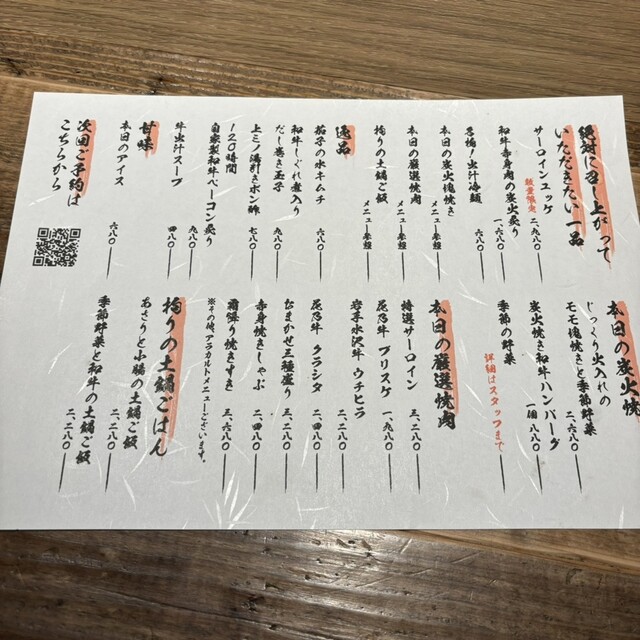 絶対に召し上がって
いただきたい一品
サーロインユッケ
数量限定
一、九八〇
和牛赤身肉の炭火炙り
一、六八〇
名物!出汁冷麺
六八〇
本日の炭火塊焼き
メニュー参照
本日の厳選焼肉
メニュー参照
拘りの土鍋ご飯
メニュー参照
逸品
茄子の水キムチ
六八〇
和牛しぐれ煮入り
だし巻き玉子
八八〇
上ミノ湯引きポン酢
七八〇
120時間
自家製和牛ベーコン炙り
九八〇
牛出汁スープ
四八〇
甘味
本日のアイス
六八〇
次回ご予約は
こちらから
本日の炭火焼
じっくり火入れの
モモ塊焼きと季節野菜
二、六八〇
炭火焼き和牛ハンバーグ
一個 八八〇
季節の野菜
詳細はスタッフまで
本日の厳選焼肉
特選サーロイン
三、二八〇
尾花牛 ブリスケ
一、九八〇
岩手水沢牛 ウチヒラ
二、二八〇
尾花牛 クラシタ
二、二八〇
おまかせ三種盛り
三、二八〇
赤身焼きしゃぶ
二、四八〇
霜降り焼きすき
三、六八〇
※その他、アラカルトメニューございます。
拘りの土鍋ごはん
あさりと小腸の土鍋ご飯
二、二八〇
季節野菜と和牛の土鍋ご飯
二、二八〇